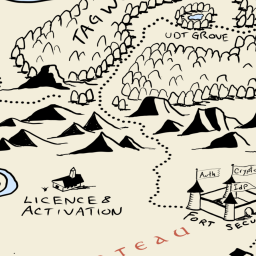 TAGW
UDT GROVE
LICENCE &
ACTIVATION
Auth
Crypto
IdP
FORT SECU
TEAU